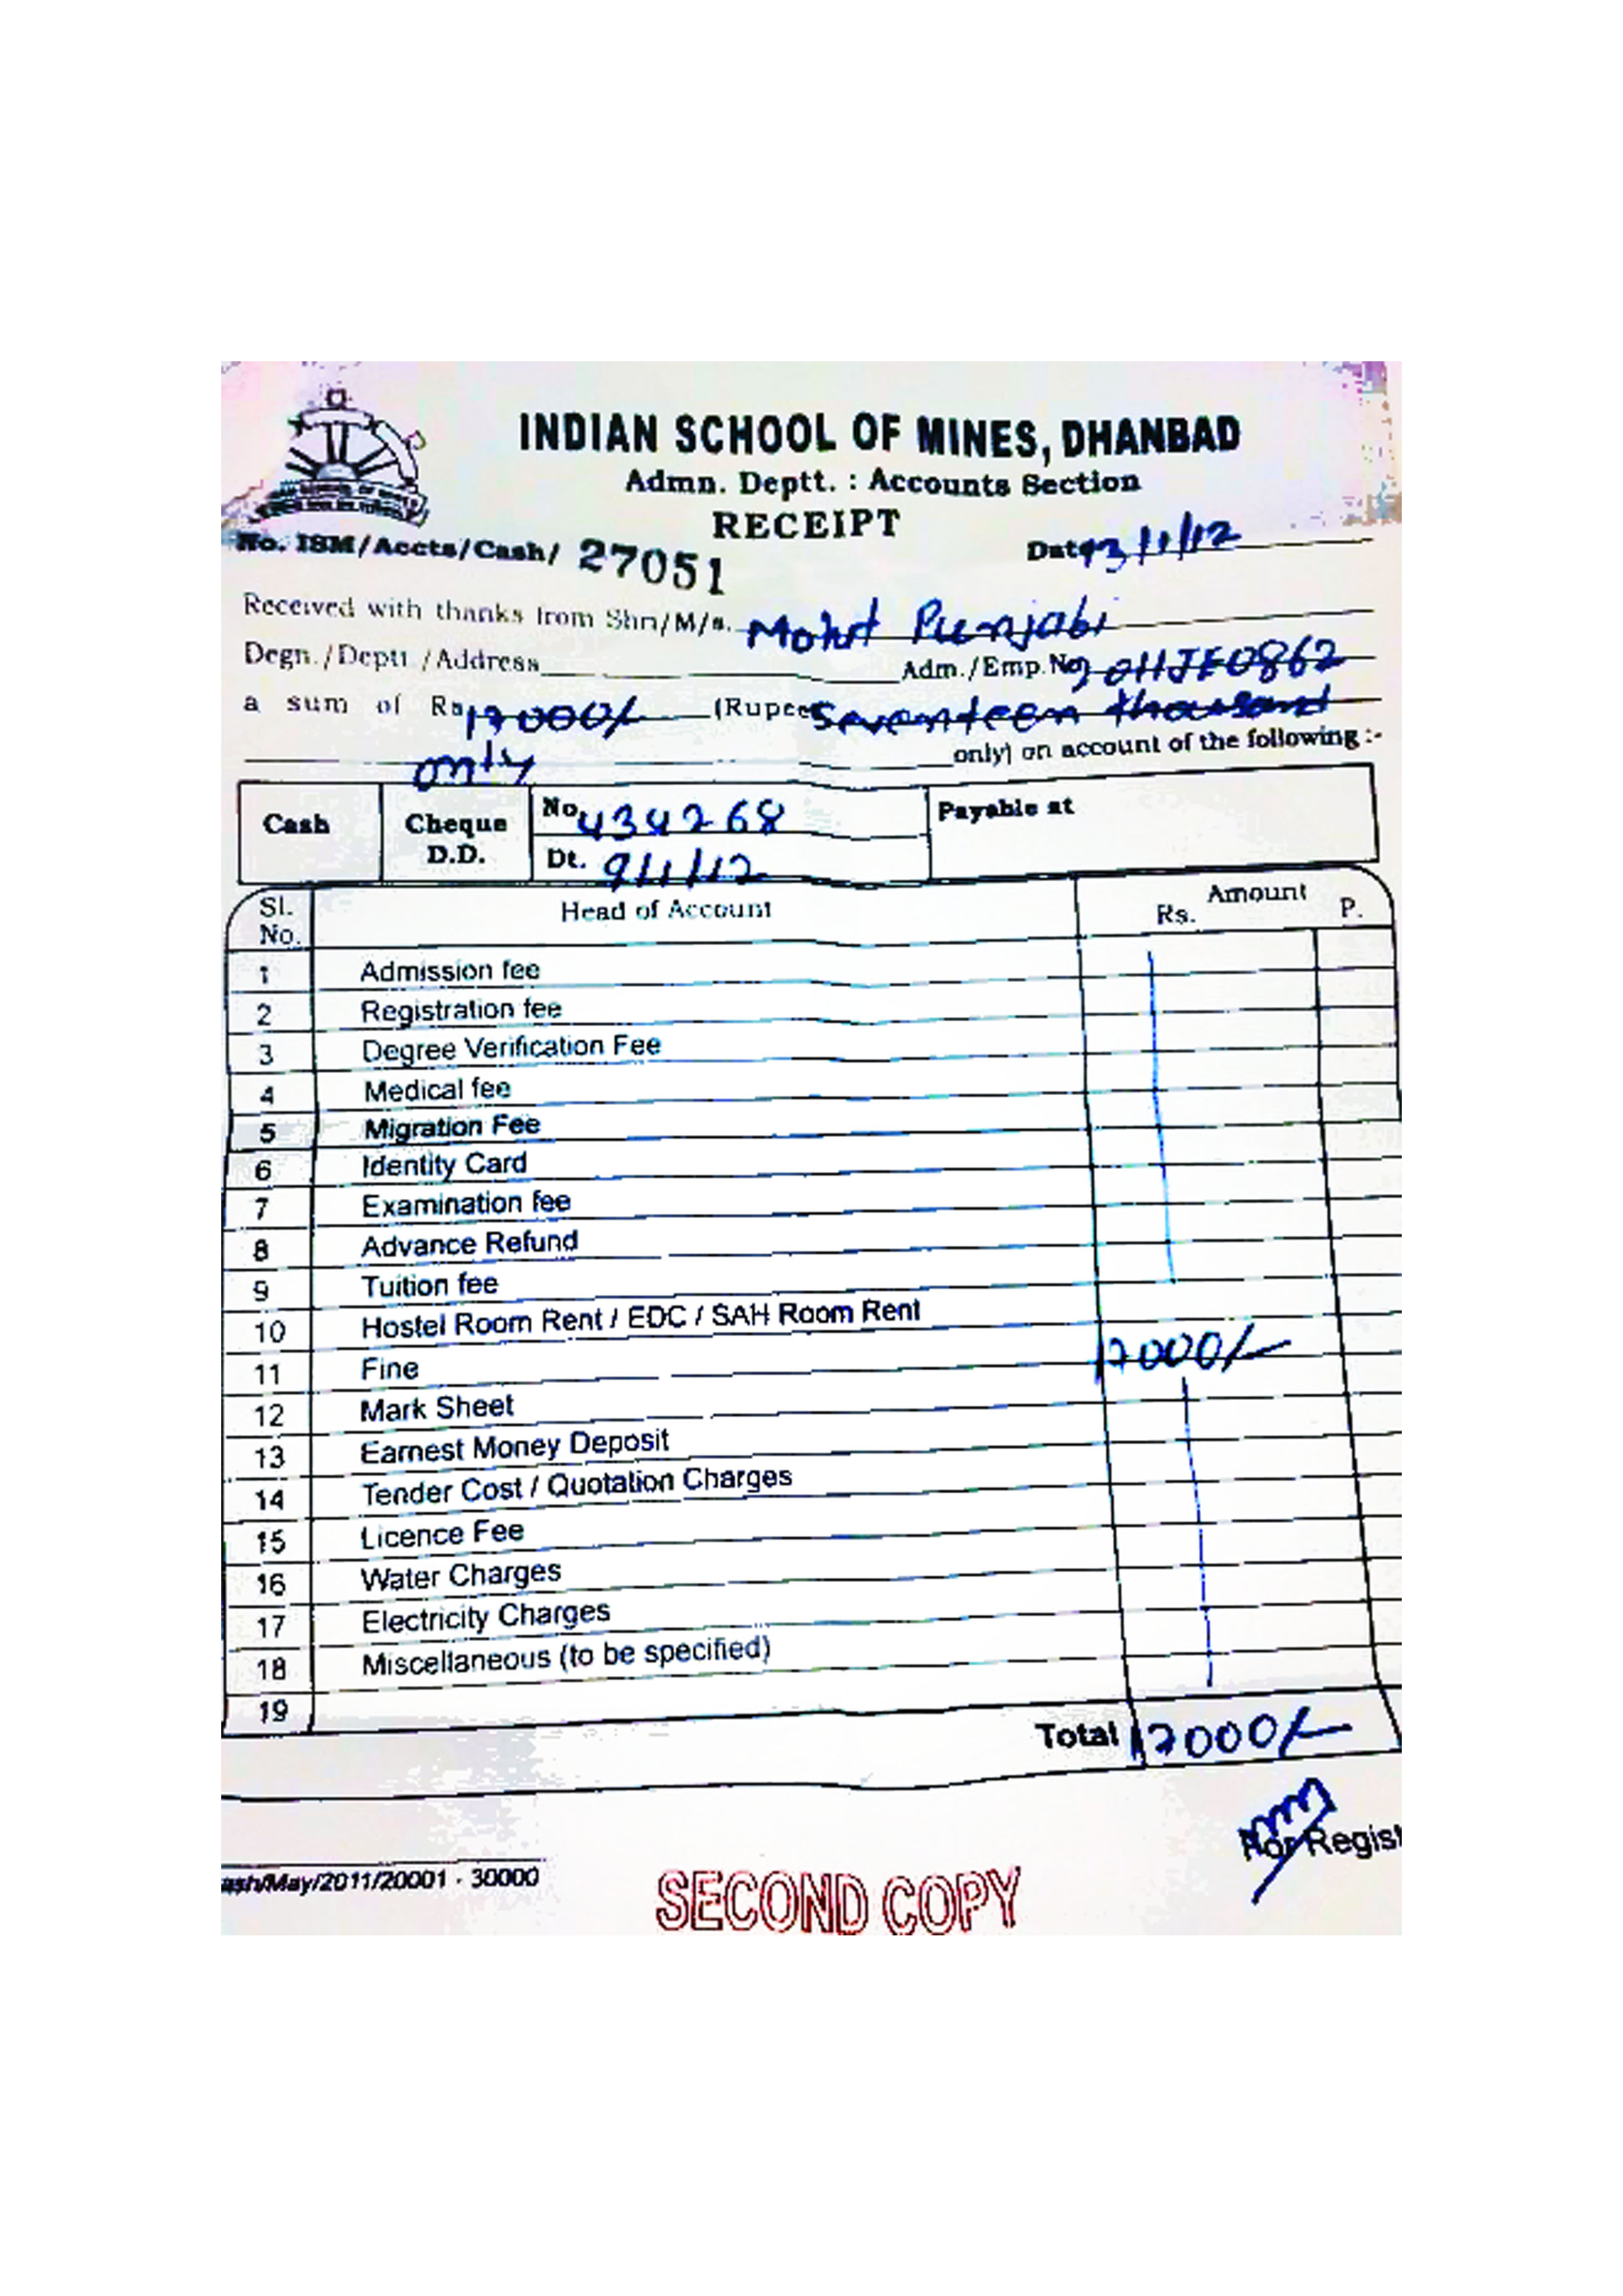 INDIAN SCHOOL OF MINES, DHANBAD
Admn. Deptt. : Accounts Section
RECEIPT
No. ISM/Accts/Cash/ 27051 Date 13/1/12
Received with thanks from Shri/M/s. Mohit Punjabi
Degn./Deptt./Address Adm./Emp.No. 2011JE0862
a sum of Rs 17000/- (Rupees Seventeen thousand
only only) on account of the following :-
Cash Cheque D.D. No. 434268 Payable at
Dt. 9/1/12
Sl. No. Head of Account Amount Rs. P.
1 Admission fee
2 Registration fee
3 Degree Verification Fee
4 Medical fee
5 Migration Fee
6 Identity Card
7 Examination fee
8 Advance Refund
9 Tuition fee
10 Hostel Room Rent / EDC / SAH Room Rent
11 Fine 17000/-
12 Mark Sheet
13 Earnest Money Deposit
14 Tender Cost / Quotation Charges
15 Licence Fee
16 Water Charges
17 Electricity Charges
18 Miscellaneous (to be specified)
19
Total 17000/-
For Regist
ash/May/2011/20001 - 30000
SECOND COPY